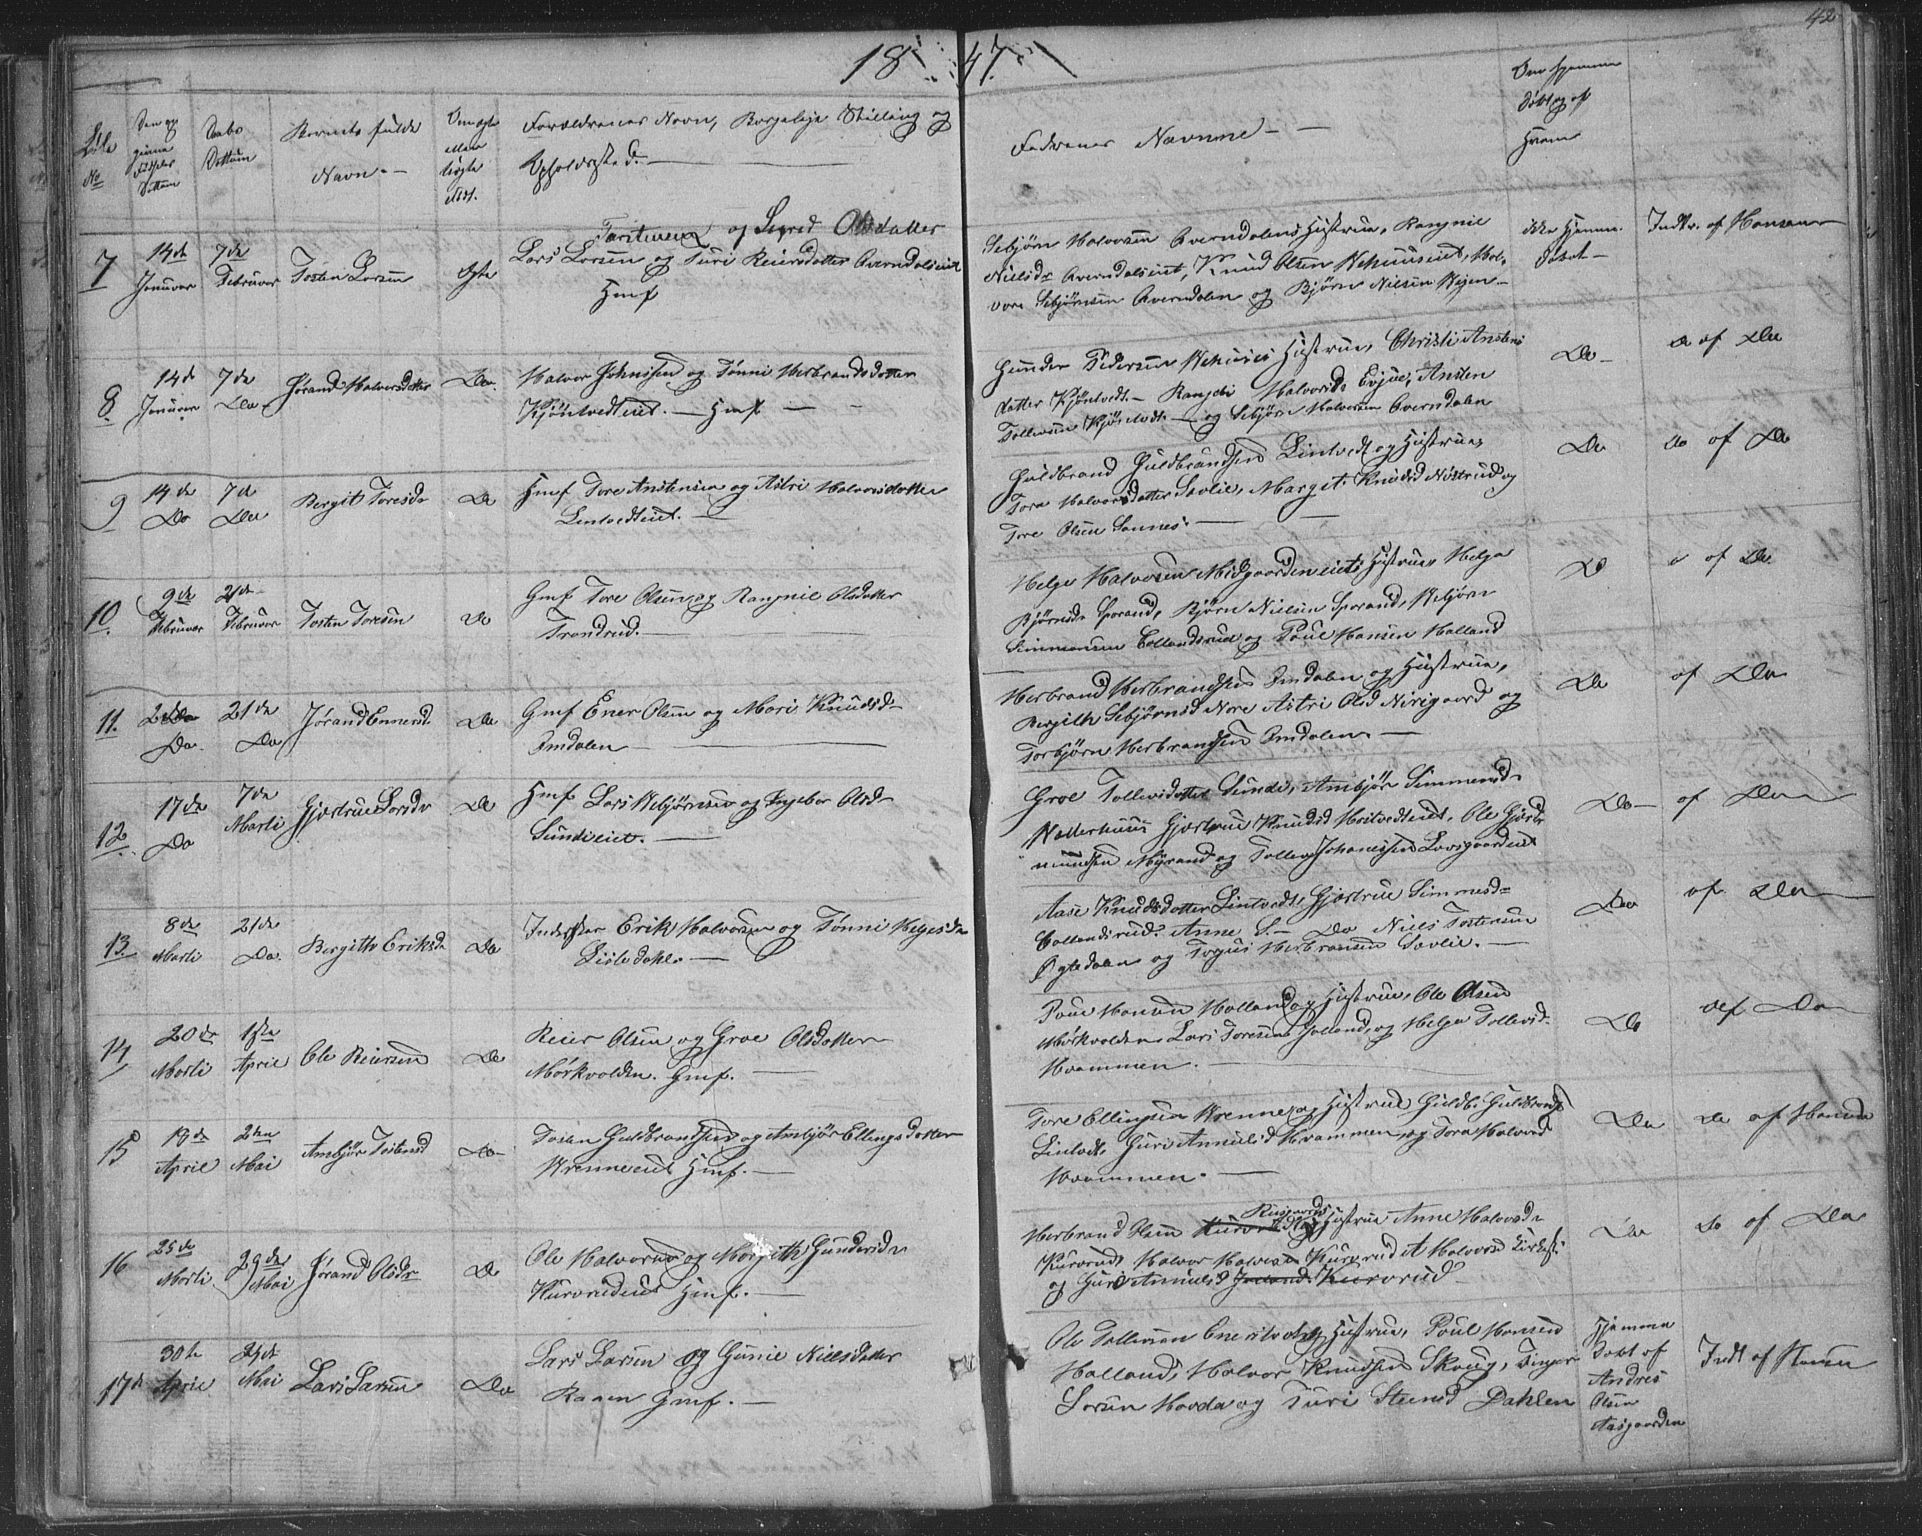 42
18 47
Løbe No
Den op givne Fødsels Dattum
Daabs Dattum
Barnets fulde Navn. -
Om ægte eller uægte Født.
Forældrenes Navn, Borgelige Stilling og
Opholdssted.
Faderenes Navnne - -
Om Hjemme Døbt og af Hvem
7
14de Januar
7de Februar
Tosten Larsen
Ægte
Torstensen og Sigrid Olsdatter
Lars Larsen og Turi Reiersdatter Averndalseiet
Hmf
Sebjørn Halvorsen Averndalens Hustrue, Rangnil
Nielsdr Averndalseiet, Knud Olsen Hal-
vore Sebjørnsen Averndalen og Bjørn Nielsen
ikke Hjemme Døbt -
Indtr. af Hansen
8
14de Januar
7de Do
Jørand Halvorsdatter
Do.
Halvor Johnssen og Tønni Herbrandsdatter
Kjøntvedteiet. - Hmf - -
Gunder Pedersen Hustrue, Christi Anstens
datter Kjøntvedt - Rangdi Halvorsdr Evjue, Ansten
Tollevsen Kjøntvedt - og Sebjørn Halvorsen Averndalen
Do -
a af Do
9
14de Do
7de Do
Bergit Toresdr
Do
Hmf Tore Anstensen og Astri Halvorsdatter
Lintvedteiet. -
Guldbrand Guldbrandsen Lintvedt og Hustrue,
Tora Halvorsdatter Savlie, Margit Knudsd Nøstrud og
Tore Olsen Sonnes. -
Do
do af Do
10.
9de Februar
21de Februar
Tosten Toresen
Do
Gmf Tore Olsen og Rangnil Olsdatter
Trondrud. -
Helge Halvorsen Midgaardeneiets Hustrue, Helga
Bjørnsdr Sporand, Bjørn Nielsen Sporand, Vebjørn
Simmonsen Collandsrud og Poul Hansen Halland
Do
af Do.
11.
Do.
21de Do
Jørand Enersd
Do
Gmf Ener Olsen og Mari Knudsd-
Imdalen -
Herbrand Herbrandsen Imdalen og Hustrue,
Bergith Sebjørnsd Nore Astri Olsd Nirigaard og
Torbjørn Herbrandsen Imdalen. -
Do
af Do
12.
17de Do
7de Marti
Gjertrue Larsdr
Do
Hmf Lars Vebjørnsen og Ingebor Olsd-
Sundeiet. -
Groe Tollevsdatter Sunde, Ambjør Simmensd-
Gjertrue Knudsd Ole Gjerd-
mundsen Myrand og Tollev Johanessen
Do -
af Do
13.
8de Marti
21de Do.
Bergitte Eriksdr
Do
Inderster Erik Halvorsen og Tønni Helgesdr
Lisledahl. -
Aase Knudsdatter Lintvedt, Gjertrue Simmesd-
Collandsrud. Anne S. - Do Niels Tostensen
Øgledalen og Torgus Herbransen Savlie. -
Do
af Do
14
20de Marti
1ste April
Ole Reiersen
Do
Reier Olsen og Groe Olsdatter
Mørkvolden. Gmf. -
Poul Hansen Halland og Hustrue, Ole Olsen
Mørkvolden Lars Toresen Joland, og Helga Tollevsd-
Hvammen. -
Do
af Do
15
13de April
2den Mai
Ambjør Tostensd
Do
Tosten Guldbrandsen og Ambjør Ellingsdatter
Vrenneeiet Hmf. -
Tore Ellingsen Vrenne og Hustrue, Guldbr Guldbrands
Lintvdt, Guri Amundsd Hvammen, og Tora Halvorsd
Hvammen. -
Do
do af Hansen
16
25de Marti
29de Mai
Jørand Olsdr
Do
Ole Halvorsen og Margith Gundersdr
Kurvrudeiet Hmf. -
Herbrand Olsen og Hustrue Anne Halvorsd-
Kurvrud Halvor Halvorsen Kurvrud A Halvorsd
og Guri Amunsd Kurvrud
Do
do af Do
17d
30te April
24de Mai
Lars Larsen
Do
Lars Larsen og Gunil Nielsdatter
Raaen Gmf. -
Ole Tollevsen og Hustrue, Poul Hansen
Halland, Halvor Knudsen Skoug, Finger
Larsen Hovda og Turi Steensd Dahlen
Hjemme Døbt af Andres Olsen Aasgaarden
Indt af Hansen